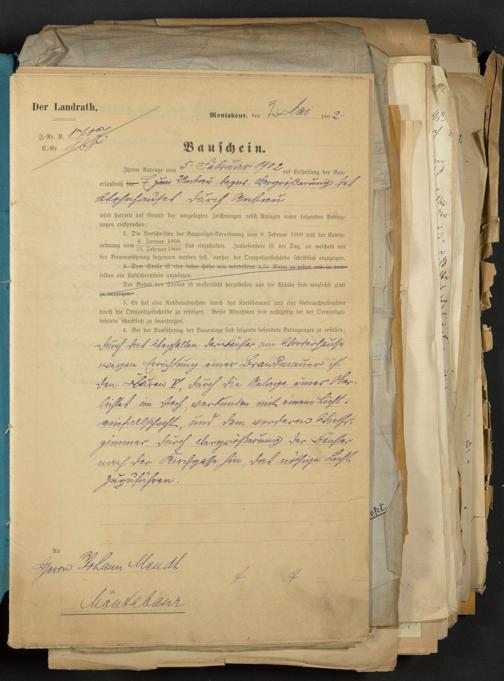 Der Landrath.
Montabaur, den 2. Mai 1902.
J.-Nr. B.
C.-Nr.
Bauschein.
Ihrem Antrage vom 5. Februar 1902 auf Ertheilung der Bau-
erlaubniß zum Umbau bezw. Vergrößerung des
Wohnhauses durch Anbau
wird hiermit auf Grund der vorgelegten Zeichnungen nebst Anlagen unter folgenden Bedin-
gungen entsprochen:
1. Die Vorschriften der Baupolizei-Verordnung vom 9. Februar 1900 und der
ordnung vom 4. Januar 1900 / 15. Februar 1900 sind einzuhalten. Insbesondere ist der Tag, an welchem mit
der Bauausführung begonnen werden soll, vorher der Ortspolizeibehörde schriftlich anzuzeigen.
2. Dem Stalle ist eine lichte Höhe von mindestens
ein Luftschornstein anzulegen.
Der Boden des Stalles ist wasserdicht herzustellen und die Wände sind möglichst glatt
zu verputzen.
3. Es hat eine Rohbauabnahme durch das Kreisbauamt und eine Gebrauchsabnahme
durch die Ortspolizeibehörde zu erfolgen. Beide Abnahmen sind rechtzeitig bei der Ortspolizei-
behörde schriftlich zu beantragen.
4. Bei der Ausführung der Bauanlage sind folgende besondere Bedingungen zu erfüllen:
Durch das Wegfallen der Fenster am Vorderhause
wegen Errichtung einer Brandmauer ist
den Fluren IV, durch die Anlage eines Ober-
lichtes im Dach, verbunden mit einem Licht-
einfallschacht, und dem vorderen
zimmer durch Vergrößerung der Fenster
nach der Kirchgasse hin, das nöthige Licht
zuzuführen.
An
Herrn Johann Mendt
Montabaur